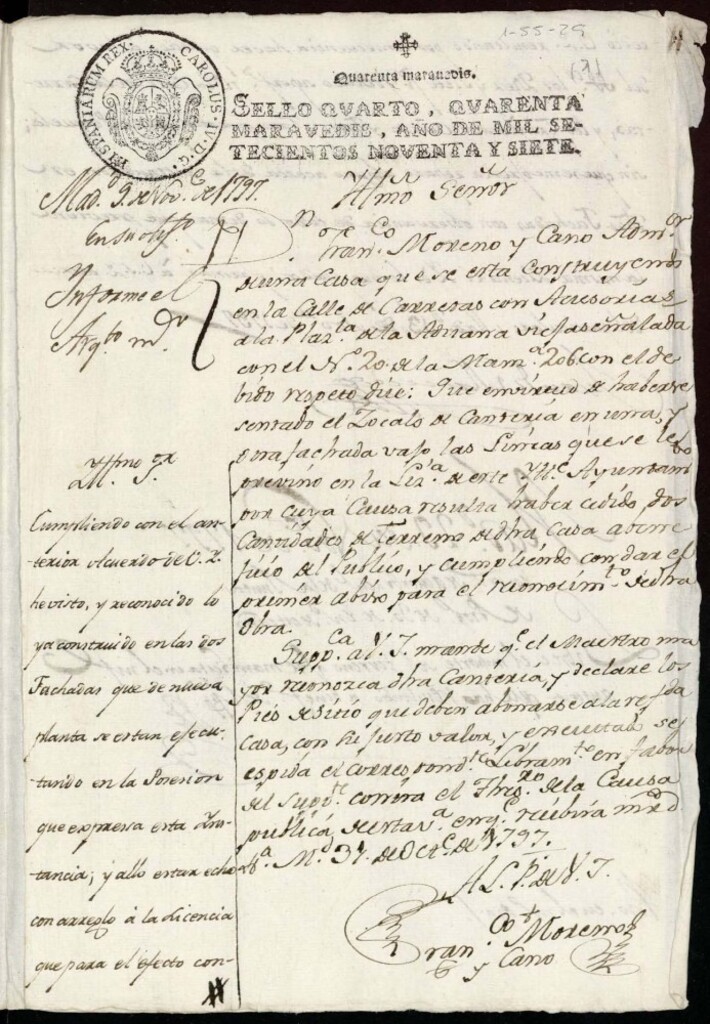 1-55-29
CAROLUS IV D.G. HISPANIARUM REX
Quarenta maravedis.
SELLO QVARTO, QVARENTA
MARAVEDIS, AÑO DE MIL SE-
TECIENTOS NOVENTA Y SIETE.
Mad.d 9. de Nov.e de 1797.
Informe el
Arq.to m.or
Yllmo Señor
Dn. Fran.co Moreno y Cano Adm.or
de una Casa que se esta construyendo
en la Calle de Carretas con Acesorias
a la Plaz.la de la Aduana vieja señalada
con el N.o 20. de la Manz.a 206 con el de
bido respeto dice: Que en virtud de haberse
sentado el Zocalo de Canteria en una, y
otra fachada vajo las Lineas que se le
previno en la Liz.a de este Yll.e Ayuntam.to
por cuya Causa resulta haber cedido, dos
Cantidades de Terreno de dha Casa a bene
ficio del Publico, y cumpliendo con dar el
primer abiso para el reconocim.to de dha
Obra.
Supp.ca a V. I. mande q.e el Maestro ma
yor reconozca dha Canteria, y declare los
Pies de sitio que deben abonarse a la referida
Casa, con su justo valor, y executado se
espida el correspond.te Libram.to en fabor
del Supp.te contra el Thes.ro de la Causa
publica de esta V.a en q.e recibira mrd
M.d 31. de Oct.e de 1797.
A L. P. de V. I.
Fran.co Moreno
y Cano
Yllmo S.or
Cumpliendo con el an-
terior Acuerdo de V. I.
he visto, y reconocido lo
ya construido en las dos
Fachadas que de nueva
planta se estan efecu-
tando en la Posesion
que expresa esta Yns-
tancia; y allo estar echo
con arreglo à la Licencia
que para el efecto con-